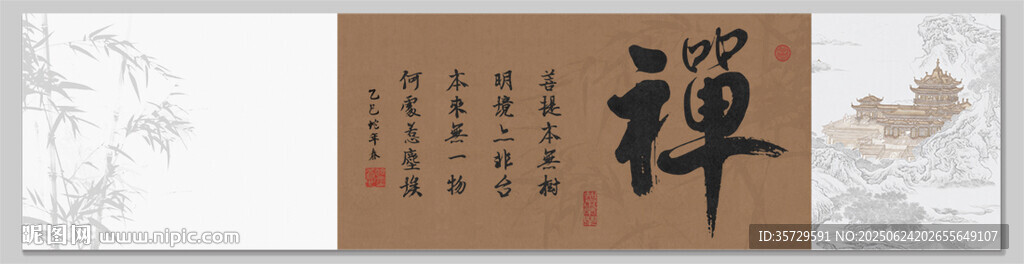 禪
菩提本無樹
明境亦非台
本來無一物
何處惹塵埃
乙巳蛇年春
昵图网 www.nipic.com
ID:35729591 NO:20250624202655649107